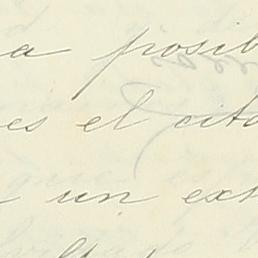 a posib
es el cito
un ext